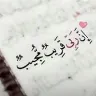 إِنَّ رَبِّي قَرِيبٌ مُجِيبٌ